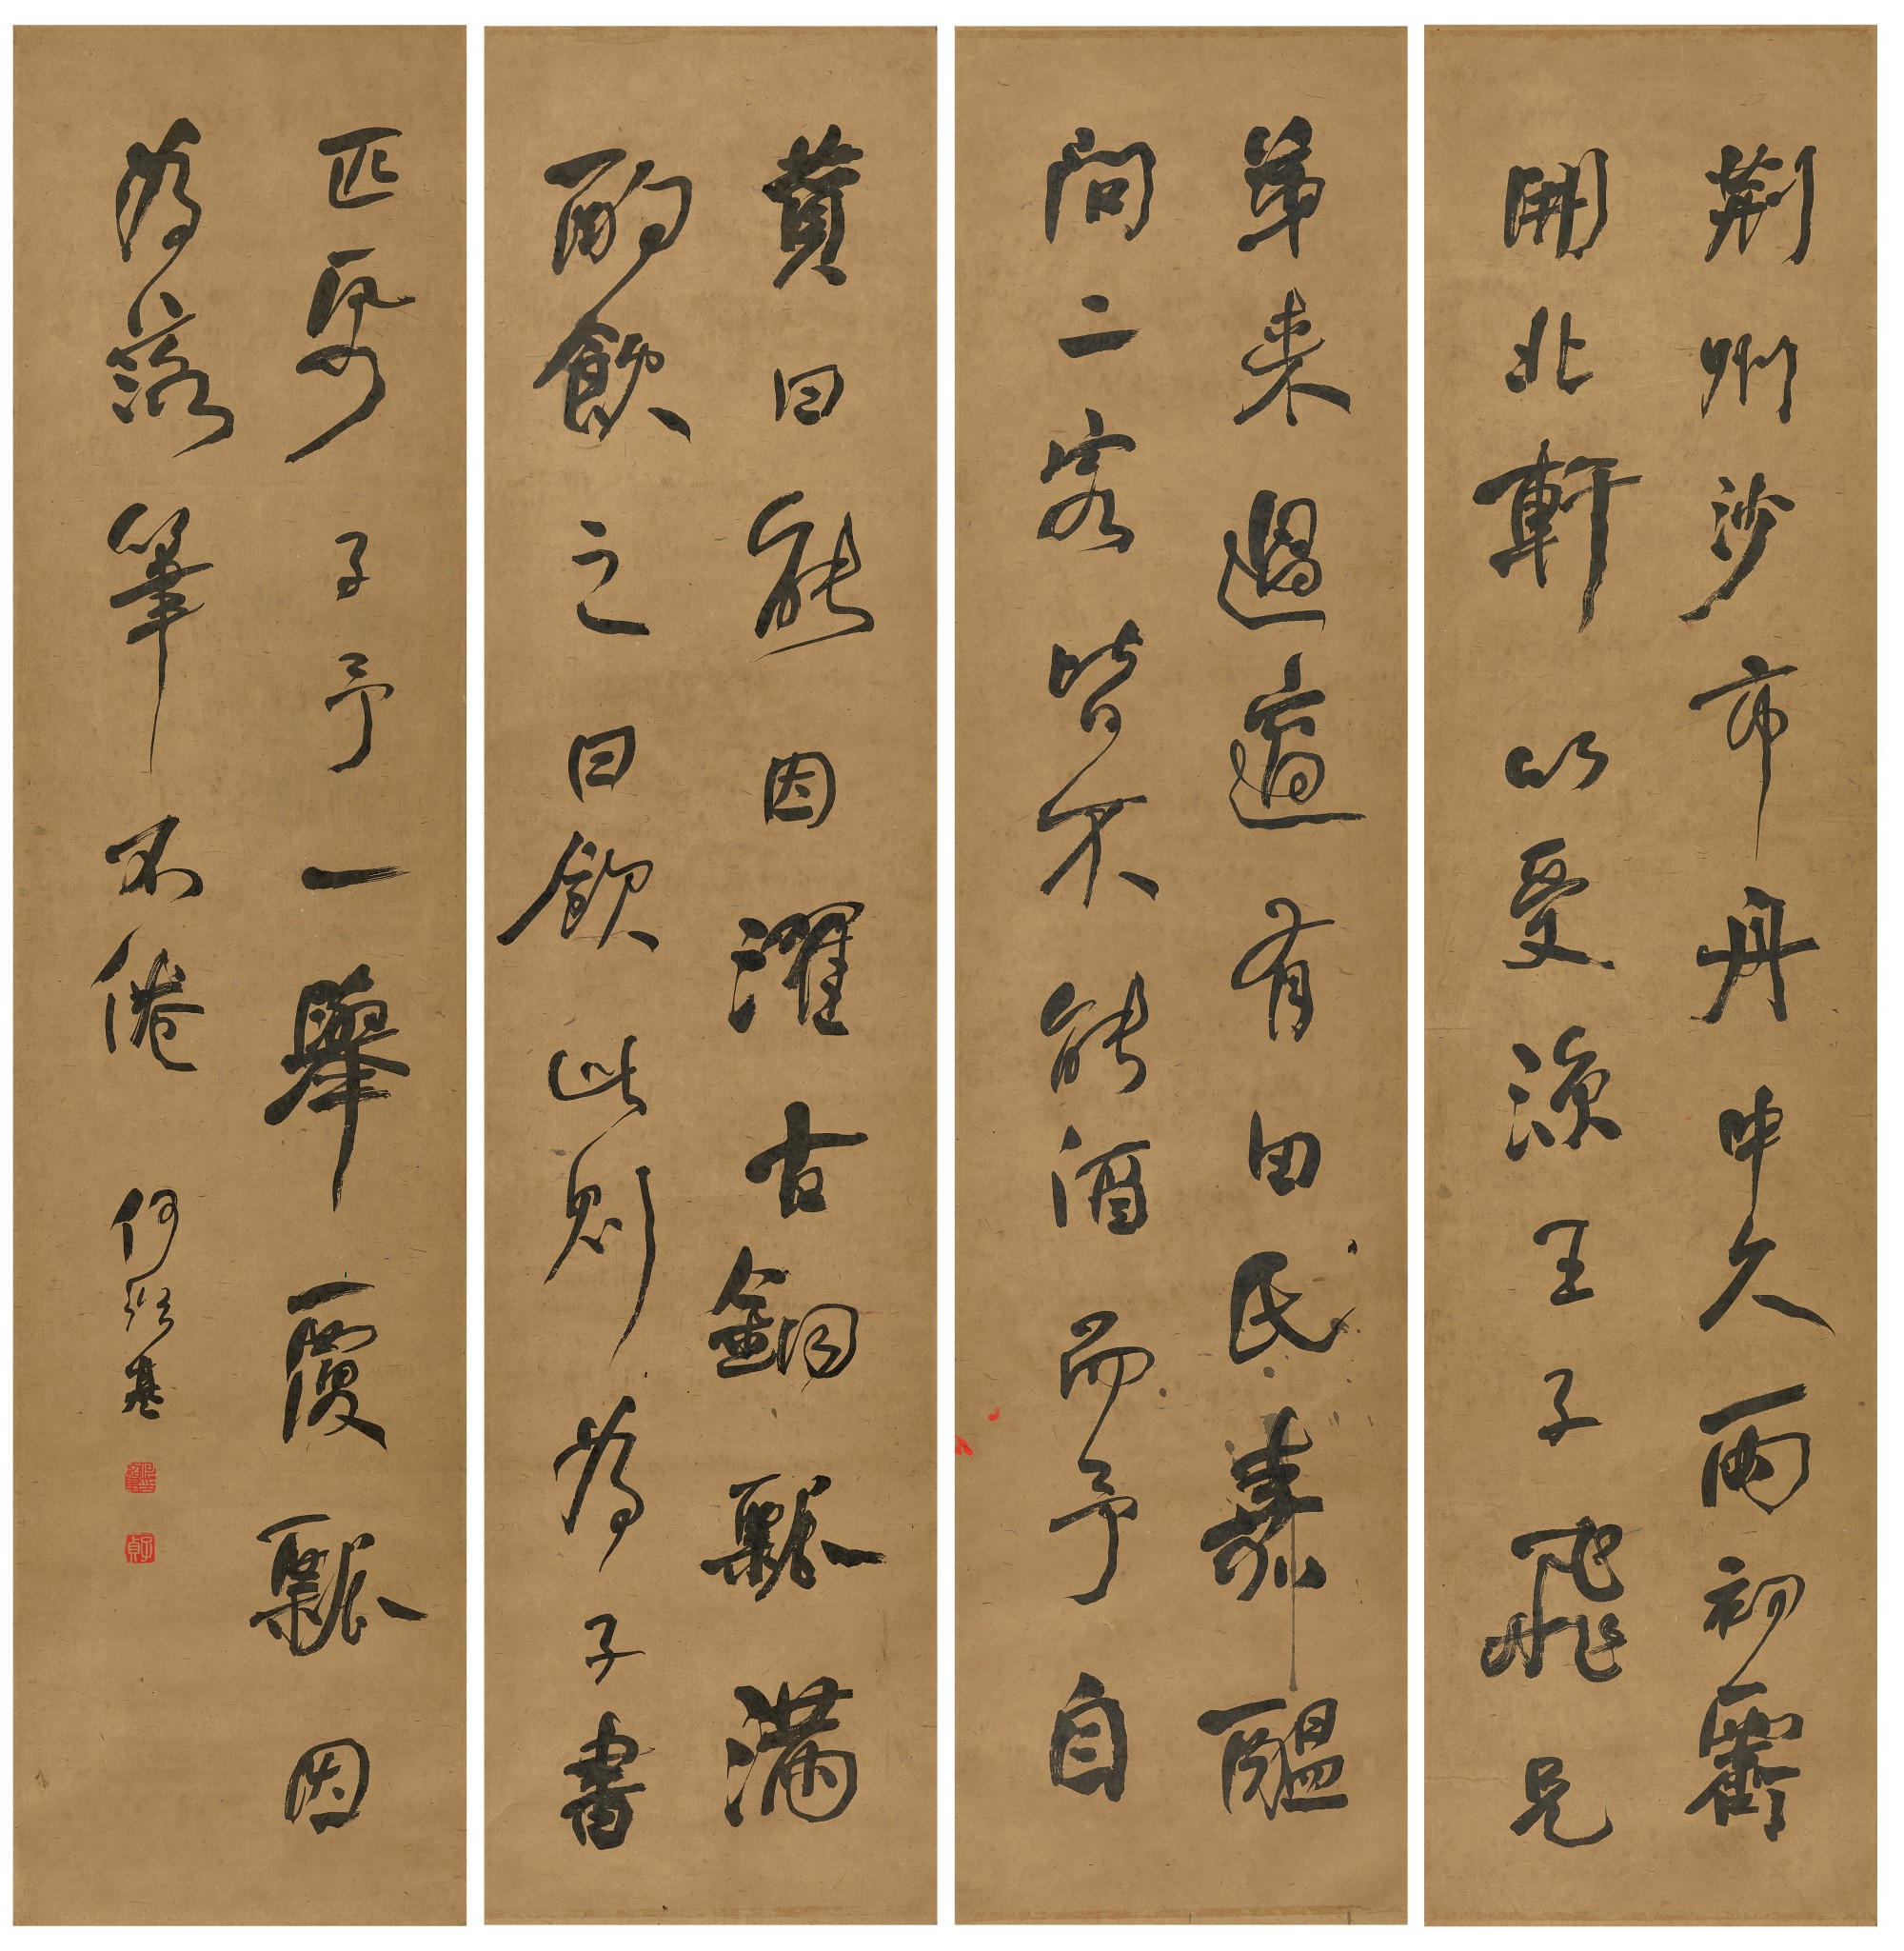 荆州沙市舟中久雨初霽
開北軒以受涼王子飛兄
弟来過適有田氏嘉醖
問二客皆不能酒而予自
贊曰能因濯古銅瓢滿
酌飲之曰飲此則為子書
匹帋子予一舉覆瓢因
為落筆不倦
何紹基
子貞